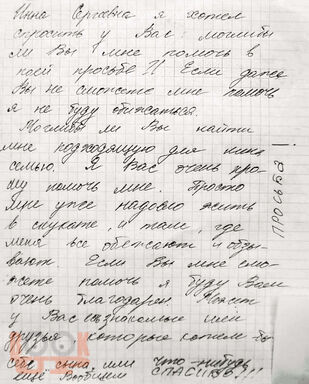 Инна Сергевна я хотел
спросить у Вас: моглибы
ли Вы мне помочь в
моей просьбе?! Если даже
Вы не сможете мне помочь
я не буду обижаться.
Моглибы ли Вы найти
мне подходящую для меня
семью. Я Вас очень про-
шу помочь мне. Просто
мне уже надоело жить
в интернате, и там, где
меня все обежают и обзы-
вают. Если Вы мне смо-
жете помочь я буду Вам
очень благодарен. Может
у Вас есть знакомые или
друзья которые хотели бы
себе сына или что-нибудь
ещё Вообщем СПАСИБО!!!
ПРОСЬБА!